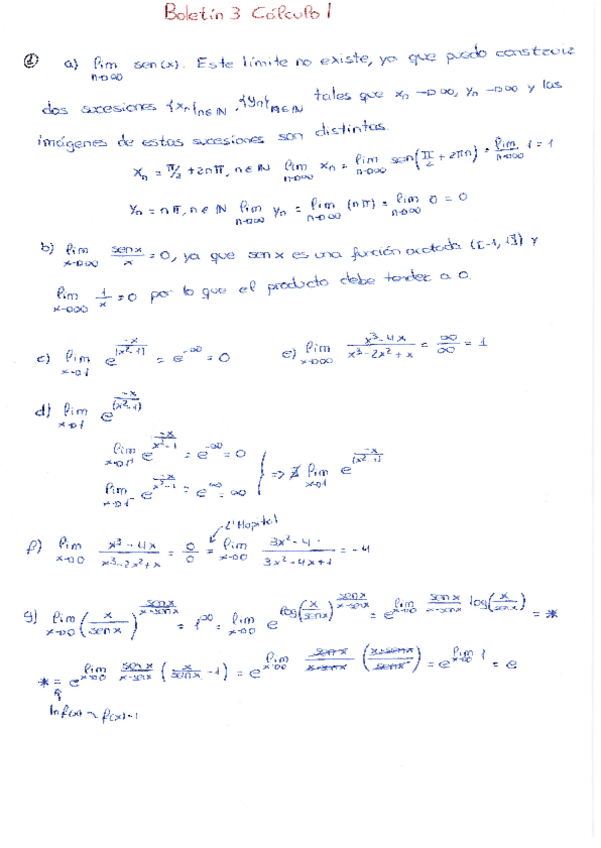 Boletín 3 Cálculo 1
① a) lim_{n→∞} sen(x). Este límite no existe, ya que puedo construir
dos sucesiones {xn}n∈ℕ, {yn}n∈ℕ tales que xn → ∞, yn → ∞ y las
imágenes de estas sucesiones son distintas.
xn = π/2 + 2nπ, n∈ℕ lim_{n→∞} xn = lim_{n→∞} sen(π/2 + 2πn) = lim_{n→∞} 1 = 1
yn = nπ, n∈ℕ lim_{n→∞} yn = lim_{n→∞} (nπ) = lim_{n→∞} 0 = 0
b) lim_{x→∞} senx/x = 0, ya que senx es una función acotada ([-1,1]) y
lim_{x→∞} 1/x = 0 por lo que el producto debe tender a 0.
c) lim_{x→1} e^{-x/|x²-1|} = e^{-∞} = 0 e) lim_{x→∞} (x³-4x)/(x³-2x²+x) = ∞/∞ = 1
d) lim_{x→1} e^{-x/(x²-1)}
lim_{x→1⁺} e^{-x/(x²-1)} = e^{-∞} = 0
lim_{x→1⁻} e^{-x/(x²-1)} = e^{∞} = ∞ } => ∄ lim_{x→1} e^{-x/(x²-1)}
L'Hopital
f) lim_{x→0} (x³-4x)/(x³-2x²+x) = 0/0 = lim_{x→0} (3x²-4)/(3x²-4x+1) = -4
g) lim_{x→0} (x/senx)^{senx/(x-senx)} = 1^∞ = lim_{x→0} e^{log(x/senx)^{senx/(x-senx)}} = e^{lim_{x→0} senx/(x-senx) log(x/senx)} = *
* = e^{lim_{x→0} senx/(x-senx) (x/senx - 1)} = e^{lim_{x→0} senx/(x-senx) ((x-senx)/senx)} = e^{lim_{x→0} 1} = e
ln f(x) ~ f(x)-1